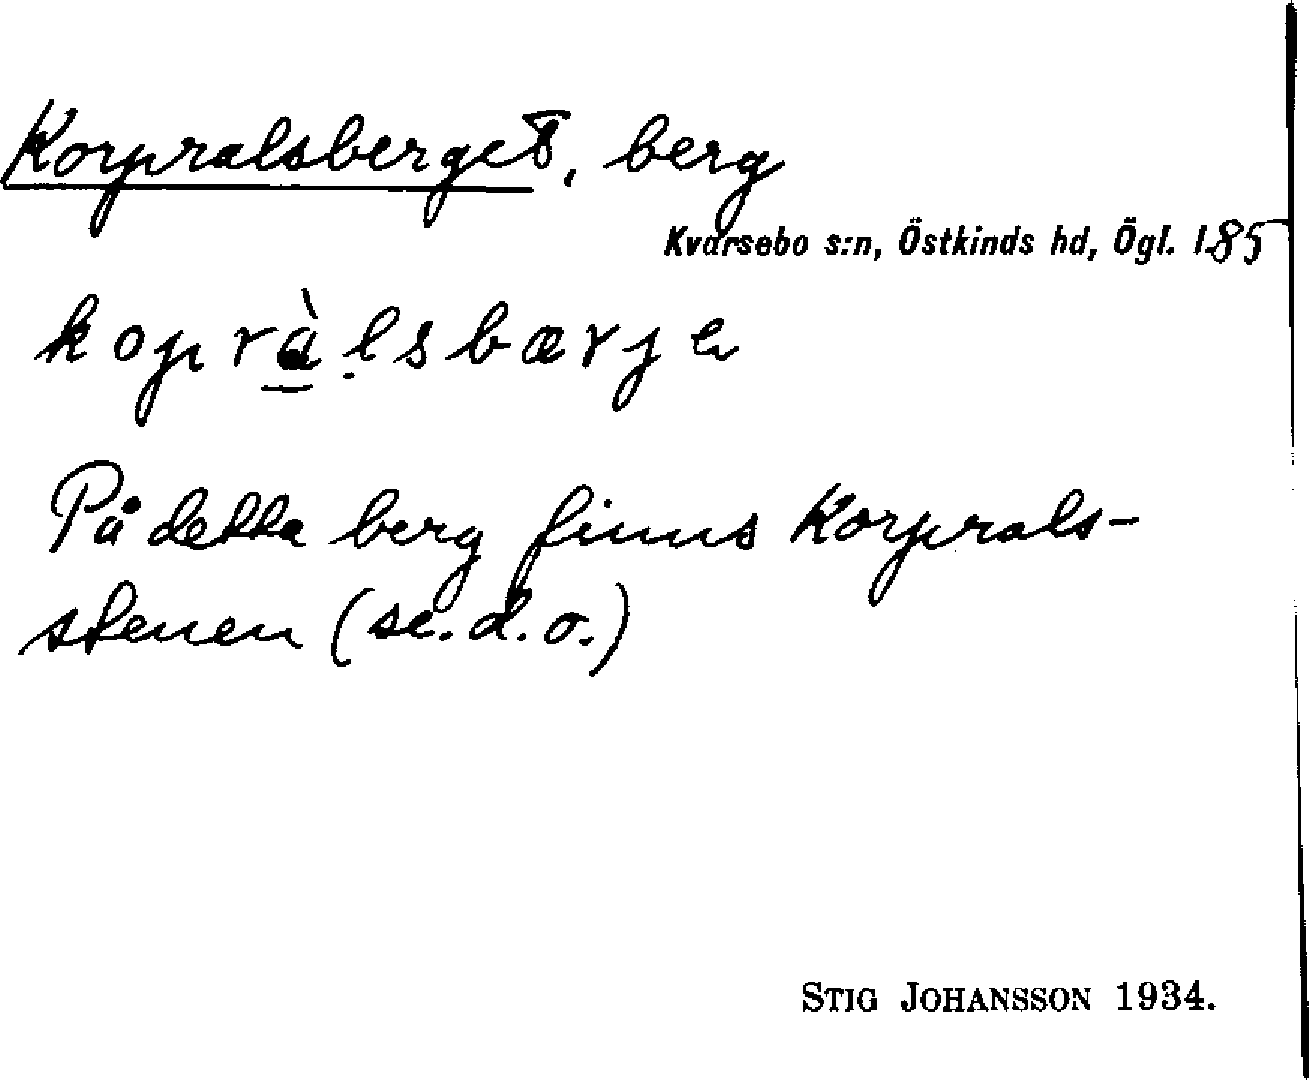 Korpralsberget, berg
Kvarsebo s:n, Östkinds hd, Ögl. 185
koprà̱ḷsbærje
På detta berg finns Korprals-
stenen (se. d. o.)
STIG JOHANSSON 1934.